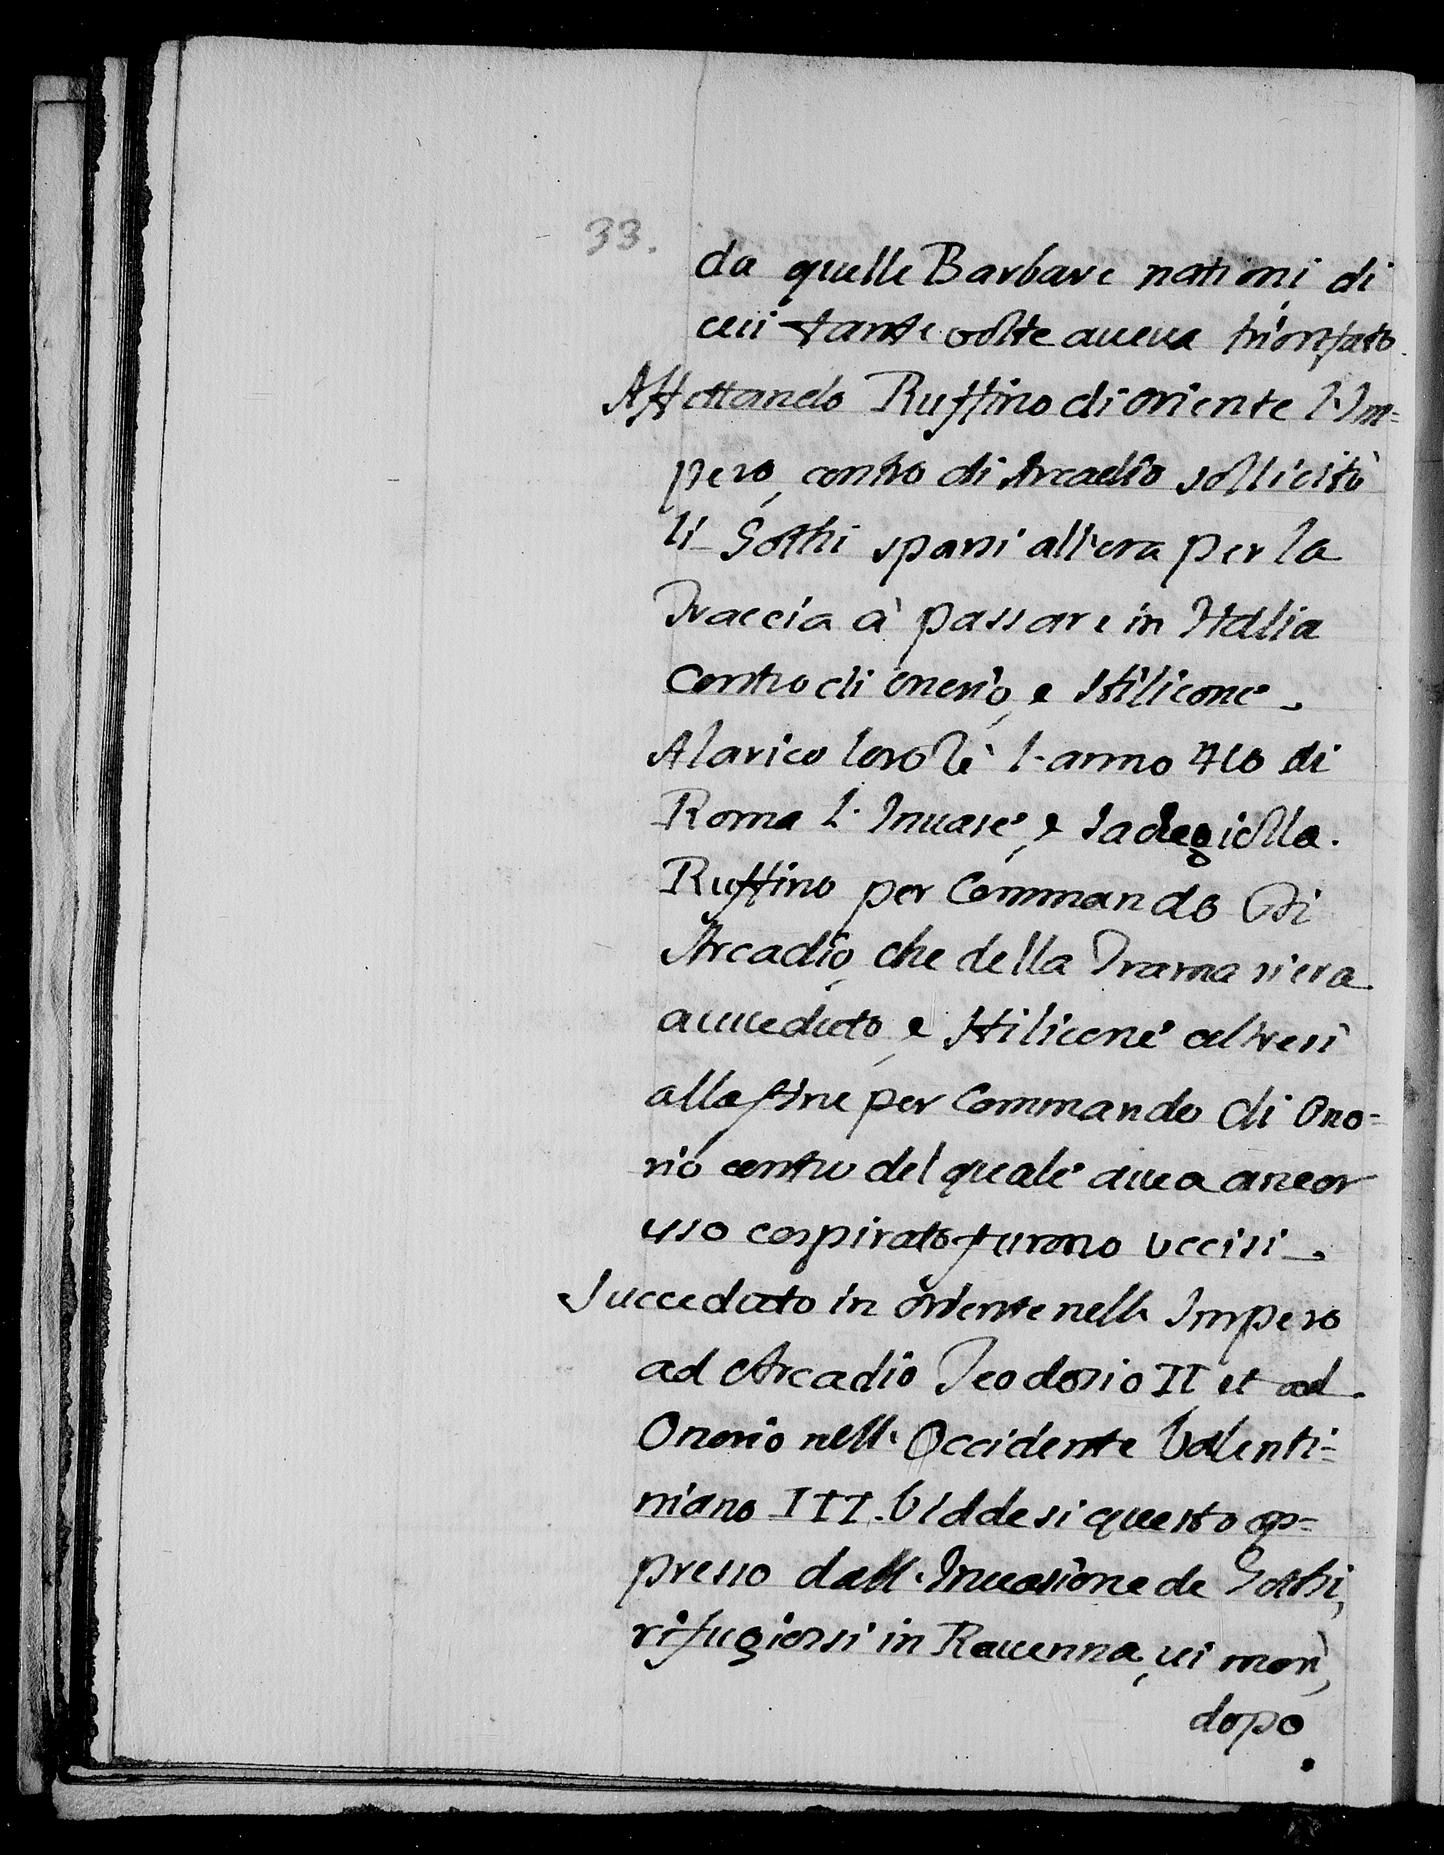 33.
da quelle Barbare nationi di
cui tante volte aueua trionfato.
Affettando Ruffino di oriente l'Im=
pero, contro di Arcadio sollicitò
li Gothi sparsi all'ora per la
Traccia à passare in Italia
Contro di onorio, e Stilicone.
Alarico loro Rè l'anno 410 di
Roma l'Inuase, e
Ruffino per Commando Di
Arcadio, che della Trama s'era
auueduto, e Stilicone altresì
alla fine per Commando di Ono=
rio contro del quale auea ancor
esso cospirato furono uccisi.
Succeduto in oriente nell'Impero
ad Arcadio Teodosio II, et ad
Onorio nell'Occidente Valenti=
niano III. Viddesi questo op=
presso dall'Inuasione de Gothi,
rifugiossi in Rauenna, ui morì,
dopo